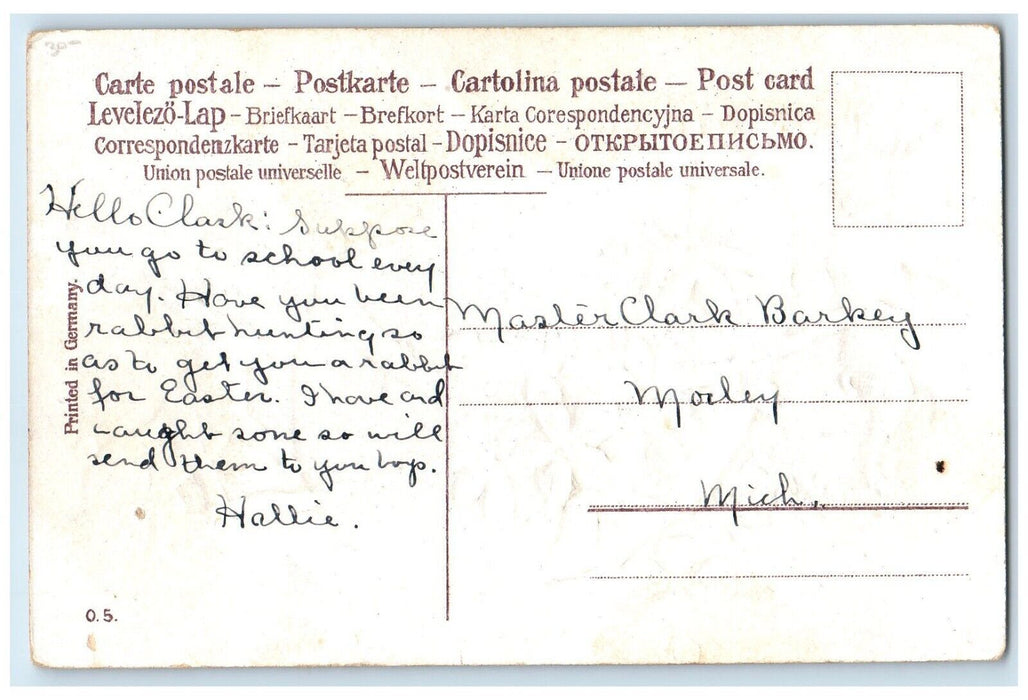 30-
Carte postale – Postkarte – Cartolina postale – Post card
Levelező-Lap – Briefkaart – Brefkort – Karta Corespondencyjna – Dopisnica
Correspondenzkarte – Tarjeta postal – Dopisnice – ОТКРЫТОЕПИСЬМО.
Union postale universelle – Weltpostverein – Unione postale universale.
Hello Clark: Suppose
you go to school every
day. Have you been
rabbit hunting so
as to get you a rabbit
for Easter. I have and
caught some so will
send them to you boys.
Hallie.
Printed in Germany.
Master Clark Barkey
Morley
Mich.
O. 5.